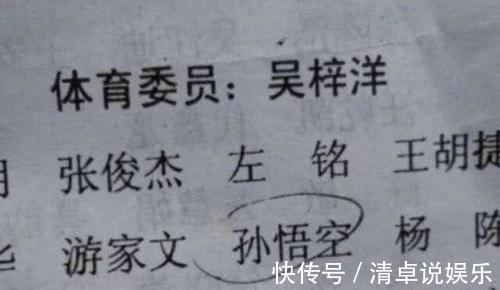 体育委员：吴梓洋
张俊杰 左 铭 王胡捷
游家文 孙悟空 杨 陈
快传号／清卓说娱乐